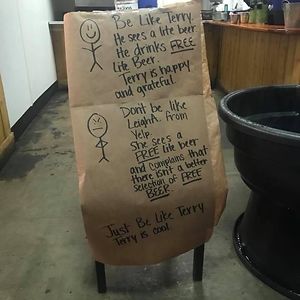 Be Like Terry.
He sees a lite beer
He drinks FREE
Lite Beer.
Terry is happy
and grateful.
Don't be like
LeighA. From
Yelp.
She sees a
FREE lite beer
and complains that
there isn't a better
selection of FREE
BEER.
Just Be Like Terry.
Terry is cool.